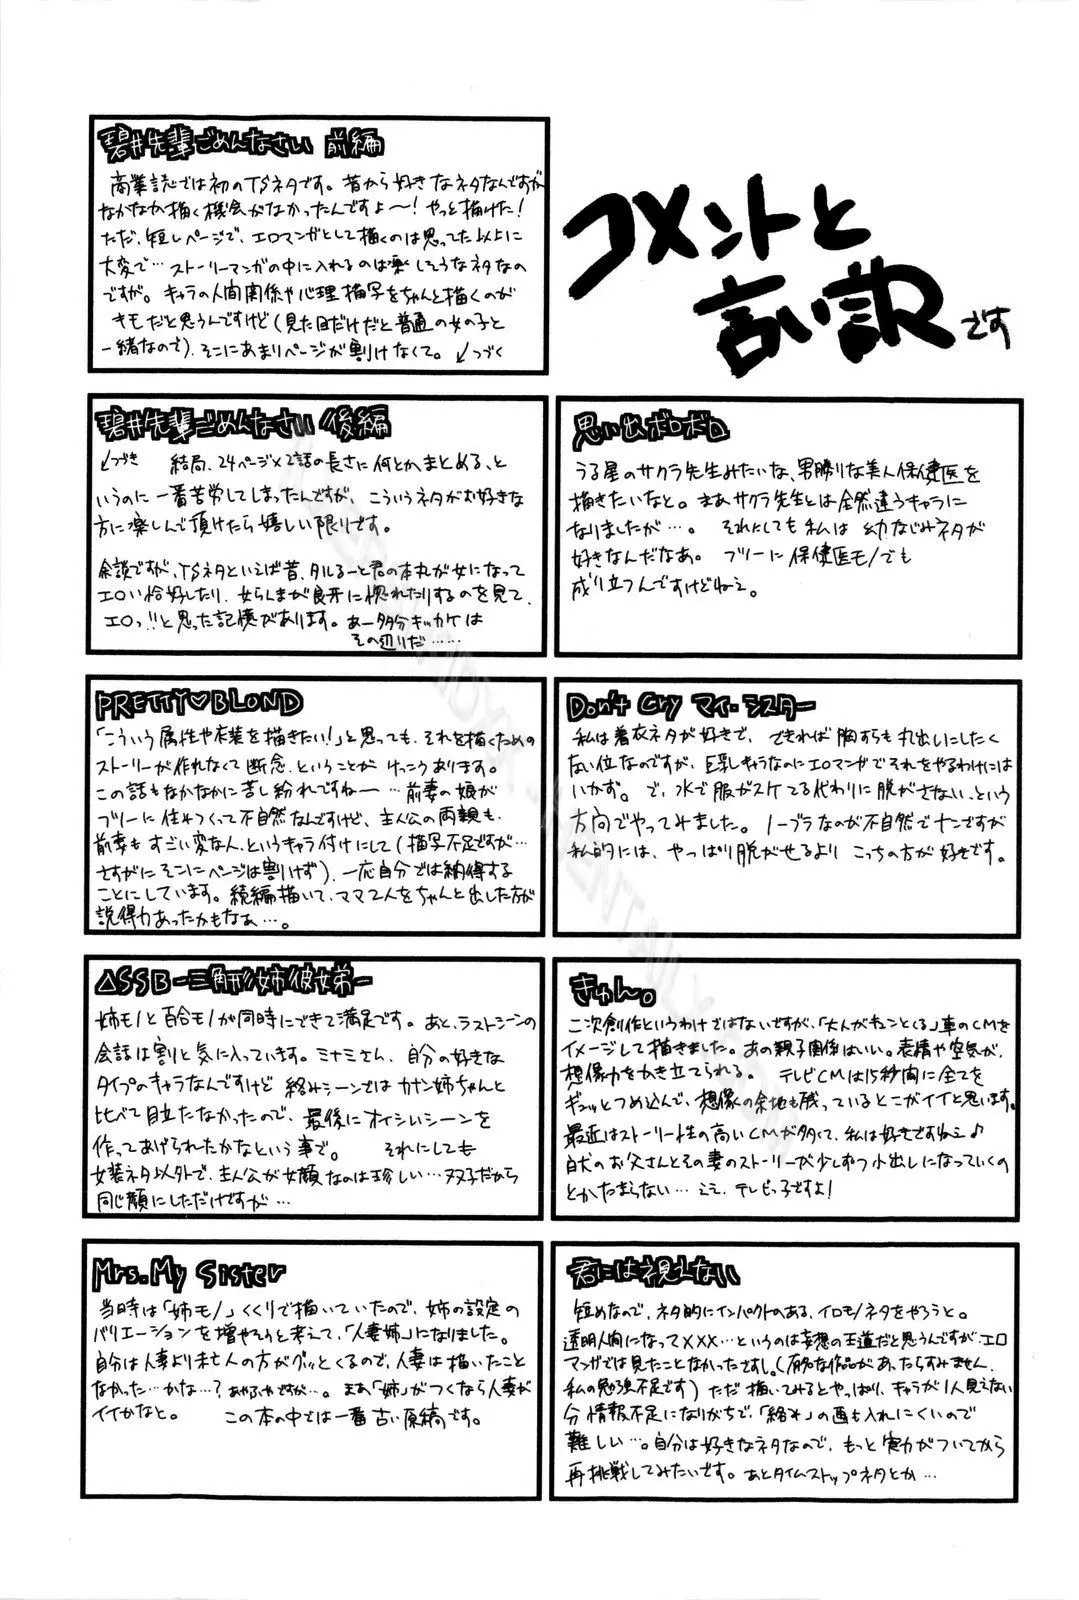 コメントと
言い訳です
碧井先輩ごめんなさい 前編
商業誌では初のTSネタです。昔から好きなネタなんですが
なかなか描く機会がなかったんですよ〜!やっと描けた!
ただ、短いページで、エロマンガとして描くのは思ってた以上に
大変で…ストーリーマンガの中に入れるのは楽しそうなネタなの
ですが。キャラの人間関係や心理描写をちゃんと描くのが
キモだと思うんですけど(見た目だけだと普通の女の子と
一緒なので)、そこにあまりページが割けなくて。↙つづく
碧井先輩ごめんなさい 後編
↙つづき 結局、24ページ×2話の長さに何とかまとめる、と
いうのに一番苦労してしまったんですが、こういうネタがお好きな
方に楽しんで頂けたら嬉しい限りです。
余談ですが、TSネタといえば昔、タルるート君の本丸が女になって
エロい恰好したり、女らんまが良牙に惚れたりするのを見て、
エロっ!!と思った記憶があります。あー多分キッカケは
その辺りだ……
思い出ボロボロ
うる星のサクラ先生みたいな、男勝りな美人保健医を
描きたいなと。まあサクラ先生とは全然違うキャラに
なりましたが…。それにしても私は幼なじみネタが
好きなんだなあ。フツーに保健医モノでも
成り立つんですけどねえ。
PRETTY♡BLOND
「こういう属性や衣装を描きたい!」と思っても、それを描くための
ストーリーが作れなくて断念、ということがけっこうあります。
この話もなかなかに苦し紛れですねー…前妻の娘が
フツーに住みつくって不自然なんですけど、主人公の両親も、
前妻もすごい変な人、というキャラ付けにして(描写不足ですが…
さすがにそこにページは割けず)、一応自分では納得する
ことにしています。続編描いて、ママ2人をちゃんと出した方が
説得力あったかもなぁ…。
Don't Cry マイ・シスター
私は着衣ネタが好きで、できれば胸すらも丸出しにしたく
ない位なのですが、巨乳キャラなのにエロマンガでそれをやるわけには
いかず。で、水で服がスケてる代わりに脱がさない、という
方向でやってみました。ノーブラなのが不自然でナンですが
私的には、やっぱり脱がせるよりこっちの方が好きです。
△SSB-三角形姉彼妹-
姉モノと百合モノが同時にできて満足です。あと、ラストシーンの
会話は割と気に入っています。ミナミさん、自分の好きな
タイプのキャラなんですけど絡みシーンではカナン姉ちゃんと
比べて目立たなかったので、最後にオイシいシーンを
作ってあげられたかなという事で。 それにしても
女装ネタ以外で、主人公が女顔なのは珍しい…双子だから
同じ顔にしただけですが…
きゅん。
二次創作というわけではないですが、「大人がキュンとくる」車のCMを
イメージして描きました。あの親子関係はいい。表情や空気が、
想像力をかき立てられる。 テレビCMは15秒間に全てを
ギュッとつめ込んで、想像の余地も残っているとこがイイと思います。
最近はストーリー性の高いCMが多くて、私は好きですねえ♪
白犬のお父さんとその妻のストーリーが少しずつ小出しになっていくの
とかたまらない…ええ、テレビっ子ですよ!
Mrs. My Sister
当時は「姉モノ」くくりで描いていたので、姉の設定の
バリエーションを増やそうと考えて、「人妻姉」になりました。
自分は人妻より未亡人の方がグッとくるので、人妻は描いたこと
なかった…かな…?あやふやですが…。まあ「姉」がつくなら人妻が
イイかなと。 この本の中では一番古い原稿です。
君には視えない
短めなので、ネタ的にインパクトのある、イロモノネタをやろうと。
透明人間になって×××…というのは妄想の王道だと思うんですが、エロ
マンガでは見たことなかったですし。(有名な作品があったらすみません、
私の勉強不足です)ただ描いてみるとやっぱり、キャラが1人見えない
分情報不足になりがちで、「絡み」の画も入れにくいので
難しい…。自分は好きなネタなので、もっと実力がついてから
再挑戦してみたいです。あとタイムストップネタとか…